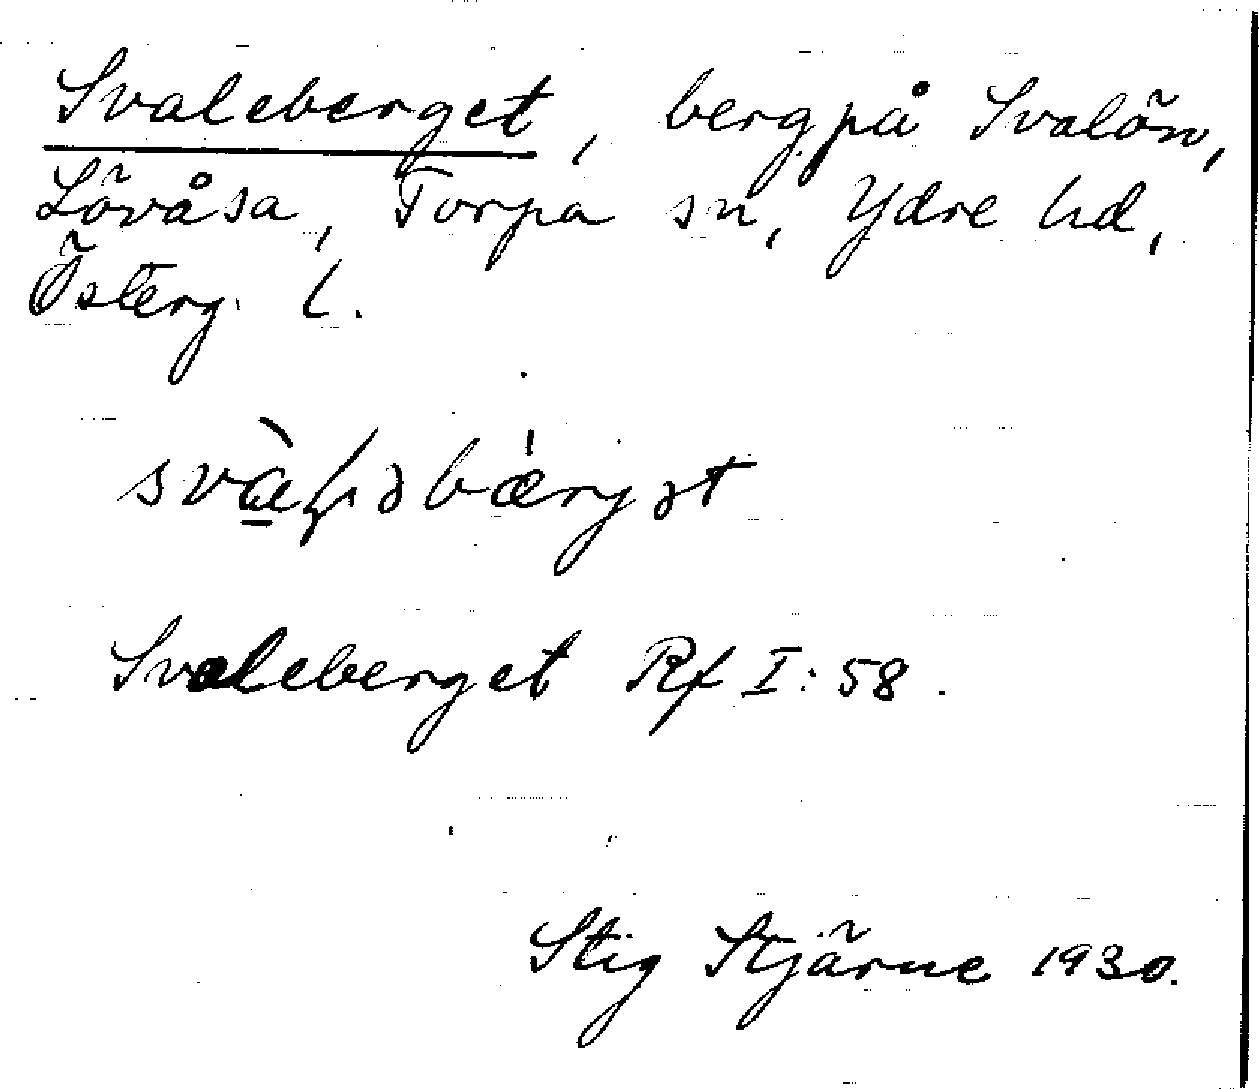 Svaleberget, berg på Svalön,
Lövåsa, Torpa sn, Ydre hd,
Österg. l.
svàɽəbæ̍rjət
Svaleberget Rf I:58.
Stig Stjärne 1930.